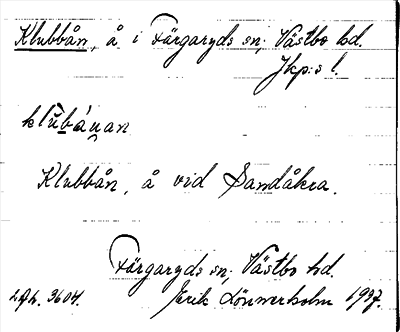 Klubbån, å i Färgaryds sn; Västbo hd.
Jkp:s l.
klŭbánan
Klubbån, å vid Sandåkra.
Färgaryds sn; Västbo hd.
Erik Lönnerholm 1937.